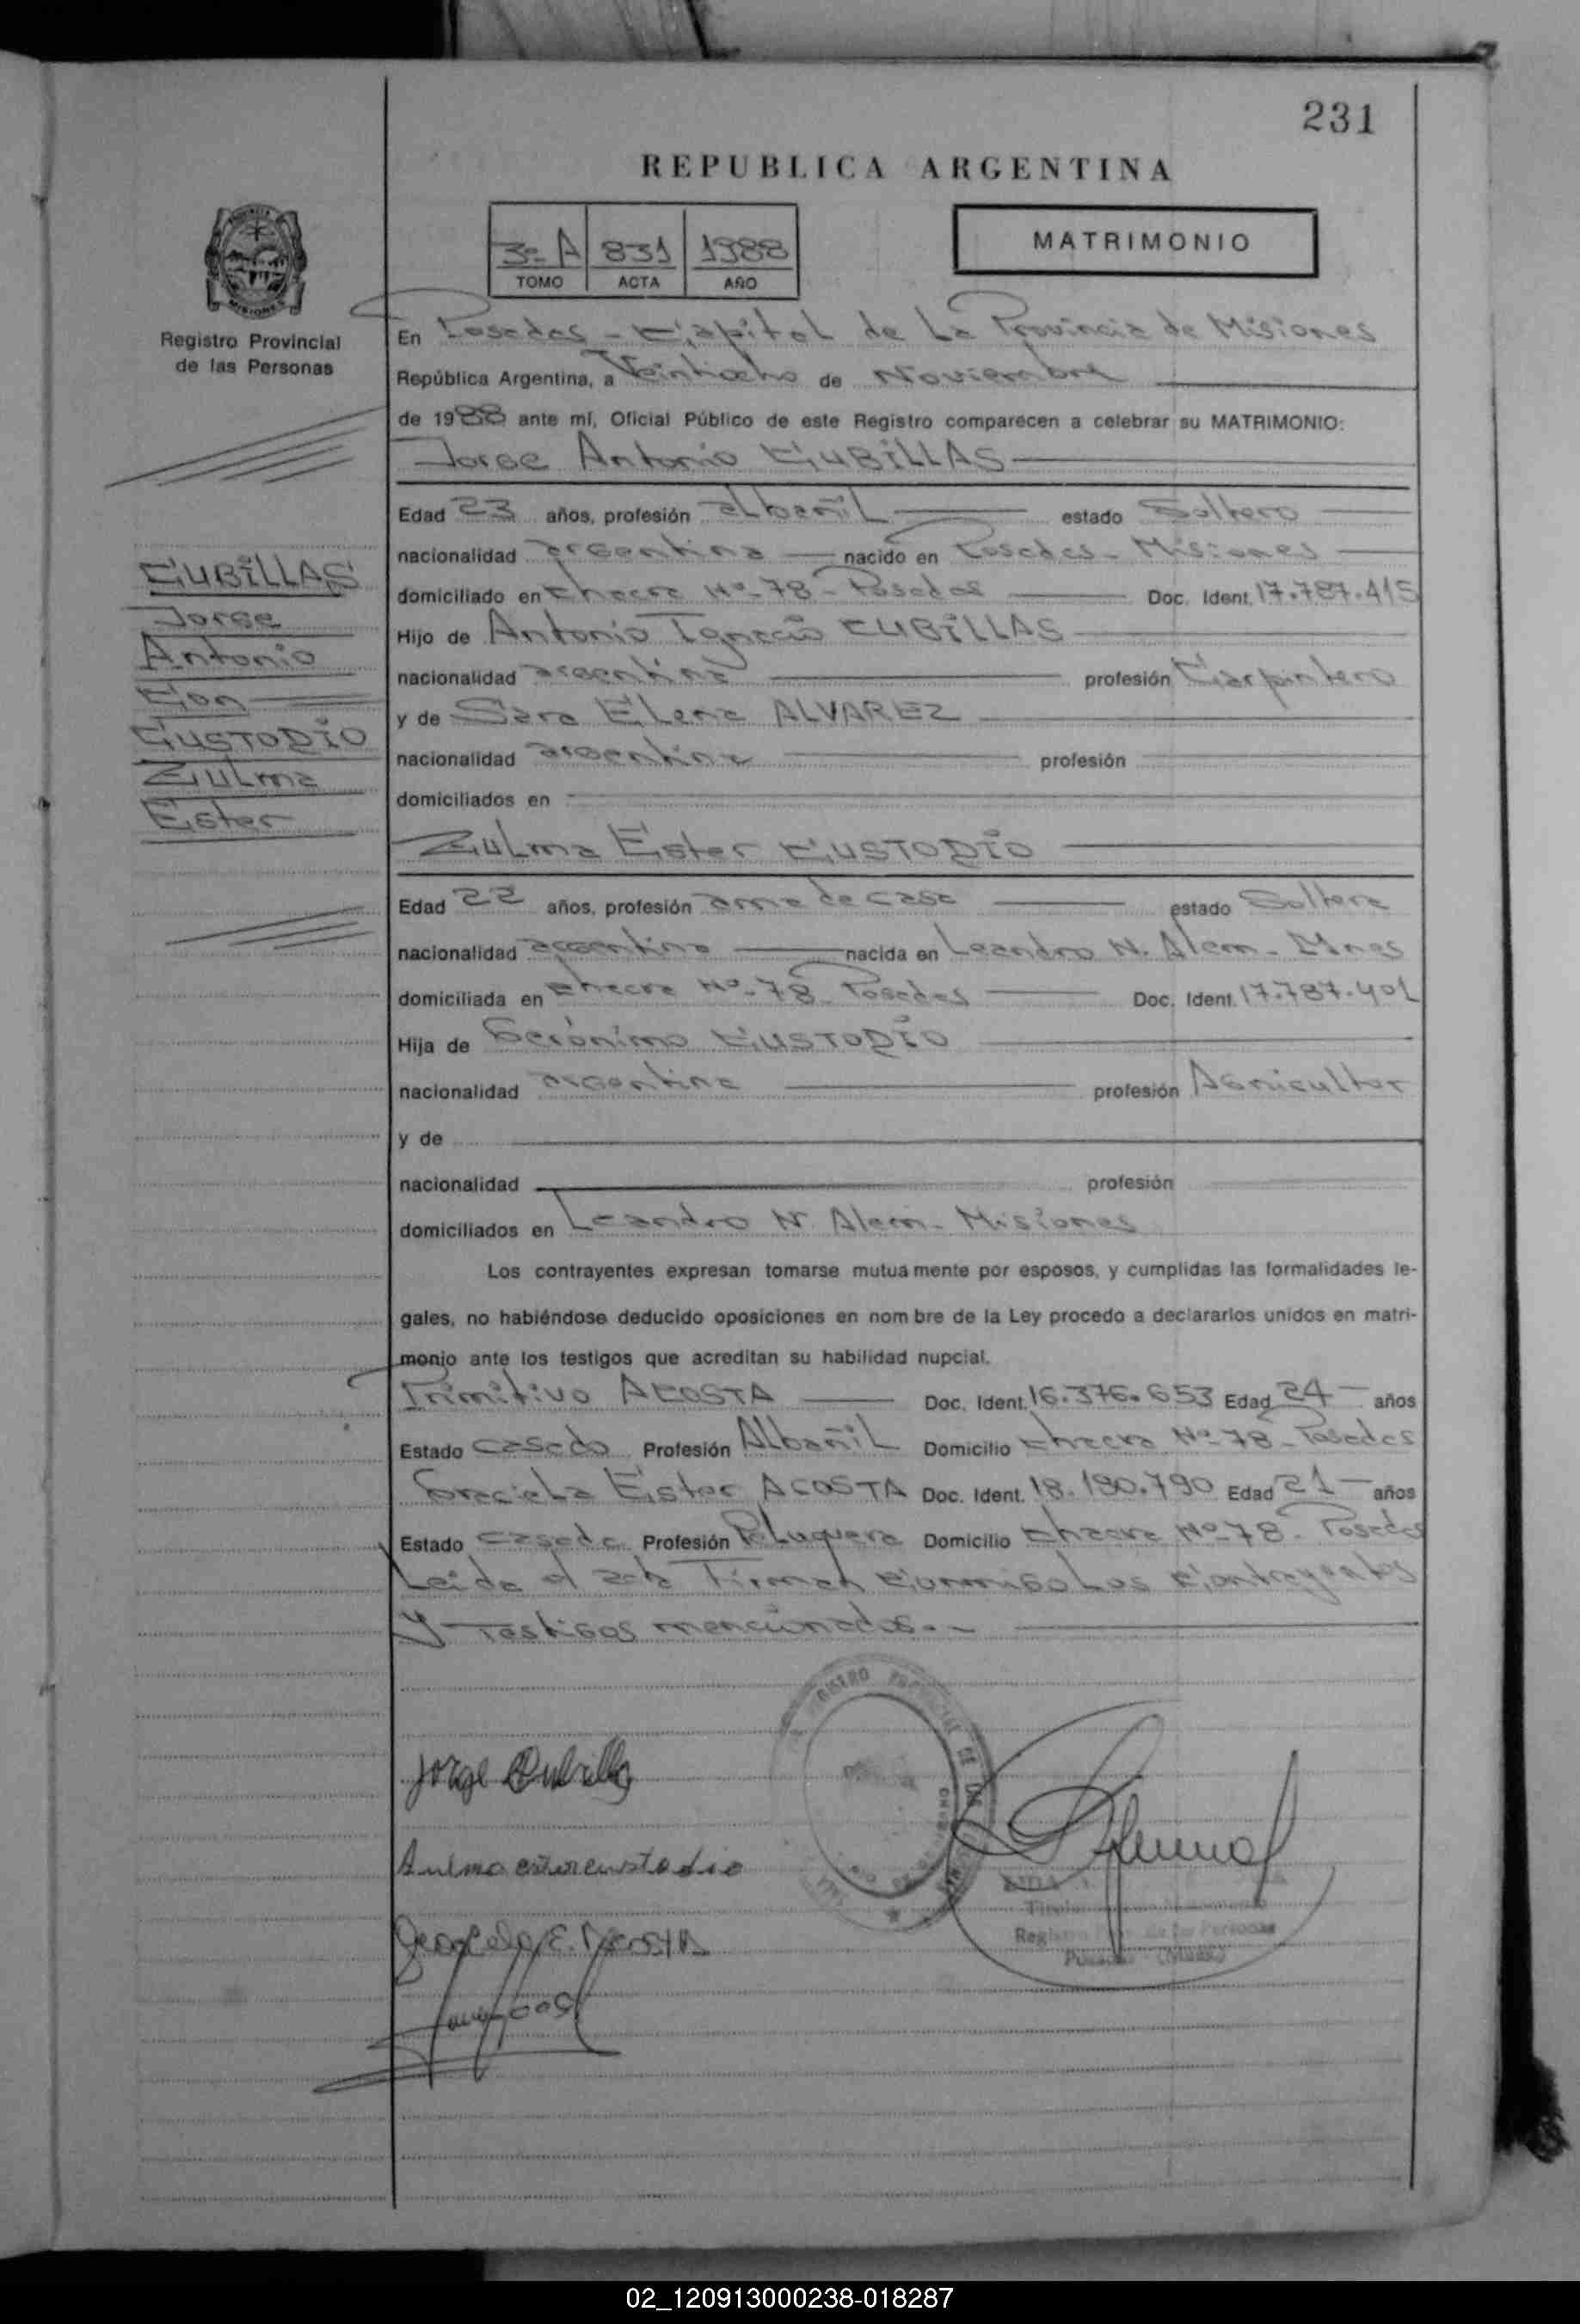 231
REPUBLICA ARGENTINA
3º A 831 1988
TOMO ACTA AÑO
MATRIMONIO
Registro Provincial
de las Personas
CUBILLAS
Jorge
Antonio
Con
CUSTODIO
Zulma
Ester
En Posadas - Capital de La Provincia de Misiones
República Argentina, a Veintiocho de Noviembre
de 1988 ante mí, Oficial Público de este Registro comparecen a celebrar su MATRIMONIO:
Jorge Antonio CUBILLAS
Edad 23 años, profesión albañil estado Soltero
nacionalidad argentina nacido en Posadas - Misiones
domiciliado en chacra Nº 78 - Posadas Doc. Ident. 17.787.415
Hijo de Antonio Ignacio CUBILLAS
nacionalidad argentina profesión Carpintero
y de Sara Elena ALVAREZ
nacionalidad argentina profesión
domiciliados en
Zulma Ester CUSTODIO
Edad 22 años, profesión ama de casa estado Soltera
nacionalidad argentina nacida en Leandro N. Alem - Mnes
domiciliada en chacra Nº 78 - Posadas Doc. Ident. 17.787.401
Hija de Gerónimo CUSTODIO
nacionalidad argentina profesión Agricultor
y de
nacionalidad profesión
domiciliados en Leandro N. Alem - Misiones
Los contrayentes expresan tomarse mutuamente por esposos, y cumplidas las formalidades le-
gales, no habiéndose deducido oposiciones en nombre de la Ley procedo a declararlos unidos en matri-
monio ante los testigos que acreditan su habilidad nupcial.
Primitivo ACOSTA Doc. Ident. 16.376.653 Edad 24 años
Estado casado Profesión Albañil Domicilio chacra Nº 78 - Posadas
Graciela Ester ACOSTA Doc. Ident. 18.190.790 Edad 21 años
Estado casada Profesión Peluquera Domicilio chacra Nº 78 - Posadas
Leida el acta Firman conmigo Los contrayentes
y Testigos mencionados.-
Jorge Cubillas
Sulma ester custodio
Graciela E. Acosta
Registro de las Personas
02_120913000238-018287